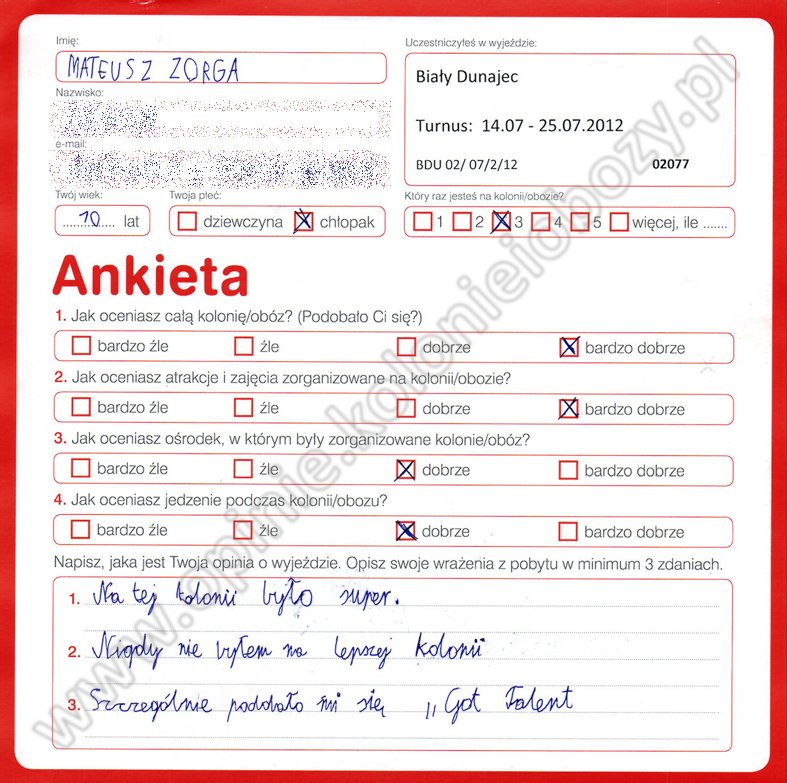 Imię:
MATEUSZ ZORGA
Nazwisko:
e-mail:
Twój wiek:
10 lat
Twoja płeć:
dziewczyna chłopak
Uczestniczyłeś w wyjeździe:
Biały Dunajec
Turnus: 14.07 - 25.07.2012
BDU 02/ 07/2/12 02077
Który raz jesteś na kolonii/obozie?
1 2 3 4 5 więcej, ile .......
Ankieta
1. Jak oceniasz całą kolonię/obóz? (Podobało Ci się?)
bardzo źle źle dobrze bardzo dobrze
2. Jak oceniasz atrakcje i zajęcia zorganizowane na kolonii/obozie?
bardzo źle źle dobrze bardzo dobrze
3. Jak oceniasz ośrodek, w którym były zorganizowane kolonie/obóz?
bardzo źle źle dobrze bardzo dobrze
4. Jak oceniasz jedzenie podczas kolonii/obozu?
bardzo źle źle dobrze bardzo dobrze
Napisz, jaka jest Twoja opinia o wyjeździe. Opisz swoje wrażenia z pobytu w minimum 3 zdaniach.
1. Na tej kolonii było super.
2. Nigdy nie byłem na lepszej kolonii
3. Szczególnie podobało mi się „Got Talent
www.opinie.kolonieiobozy.pl